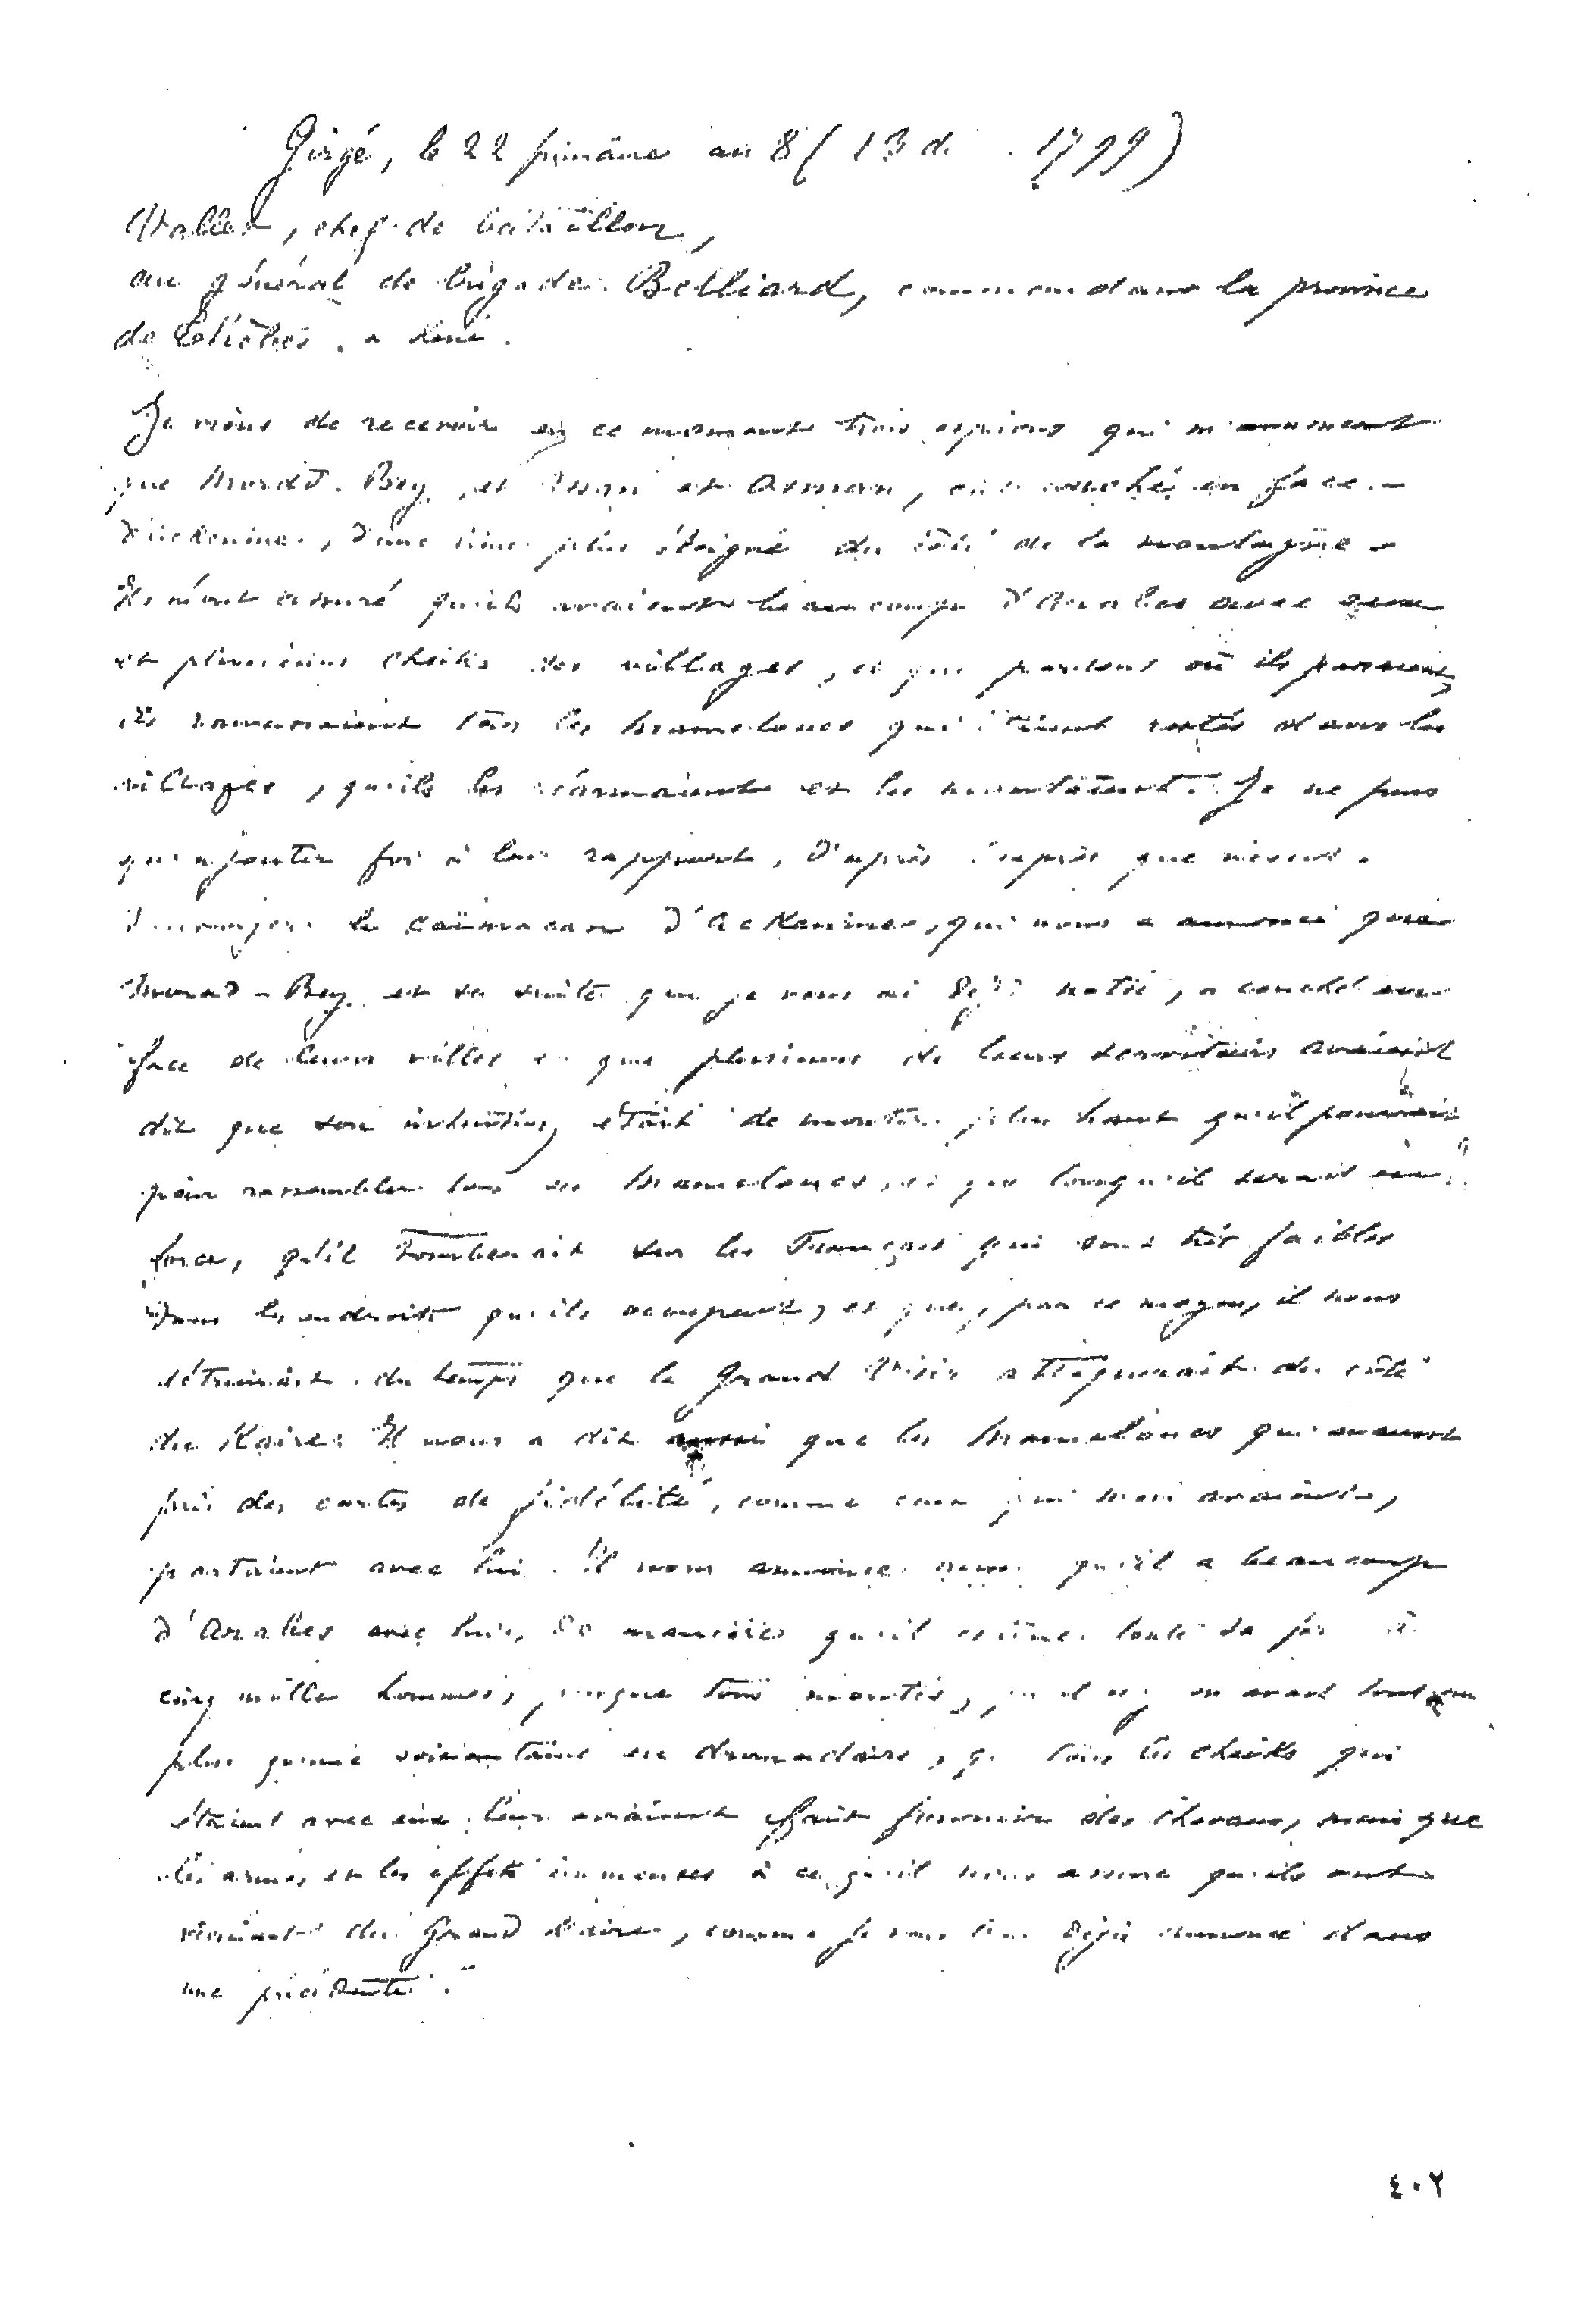 Girgé, le 22 frimaire an 8 (13 d. 1799)
, chef de bataillon,
au général de brigade Belliard, commandant la province
de Thèbes,
Je viens de recevoir en ce moment trois espions qui m'annoncent
que Mourad Bey, et Osman, couché en face
d'Ackemine, d'une lieue plus éloigné du côté de la montagne
Ils m'ont assuré qu'ils avaient beaucoup d'Arabes avec eux
et plusieurs cheiks des villages, et que partout où ils passent,
ils ramenaient tous les mamelouks qui étaient restés dans les
villages, qu'ils les réarmaient et les montaient. Je ne puis
qu'ajouter foi à leur rapport, d'après que
le caïmacan d'Ackemine, qui nous a annoncé que
Mourad-Bey et sa suite que je vous ai déjà , a couché en
face de leurs villes et que plusieurs de leurs serviteurs avaient
dit que son intention était de monter plus haut qu'il pourrait
pour rassembler tous ses mamelouks, et que lorsqu'il serait en
force, qu'il tomberait sur les Français qui sont très faibles
dans les endroits qu'ils occupent, et que, par ce moyen, il nous
détruirait du temps que le Grand Visir attaquerait du côté
du Kaire. Il nous a dit aussi que les mamelouks qui avaient
pris des cartes de fidélité, comme ceux qui n'en avaient,
partaient avec lui. Il nous annonce qu'il a beaucoup
d'Arabes avec lui, de manière qu'il estime toute sa à
cinq mille hommes, presque tous montés, il y en avait tout au
plus qu'une soixantaine en dromadaire, tous les cheiks qui
étaient avec eux leur avaient fait fournir des chevaux, mais que
les armes et les effets immenses à ce qu'il nous assure qu'ils ont
venaient du Grand Kaire, comme je vous l'ai déjà annoncé dans
une précédente."
٤٠٢